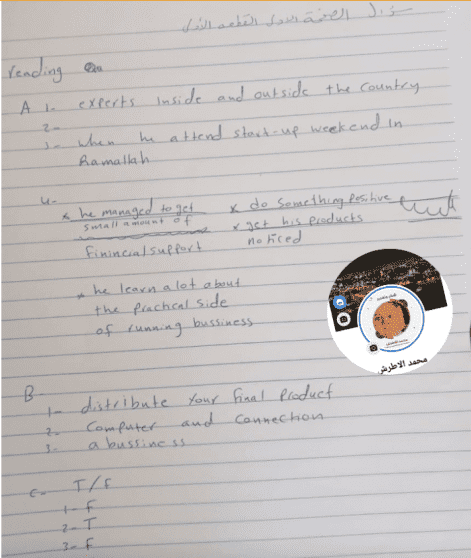 سؤال الصفحة الاولى القطعة الأولى
reading
A 1- experts inside and outside the country
2-
3- When he attend start-up weekend in
Ramallah
4-
* he managed to get
small amount of
Finincial support
* do something positive
* get his products
noticed
* he learn a lot about
the practical side
of running bussiness
محمد الاطرش
B
1- distribute your final product
2- Computer and Connection
3- a bussiness
C- T/F
1- F
2- T
3- F